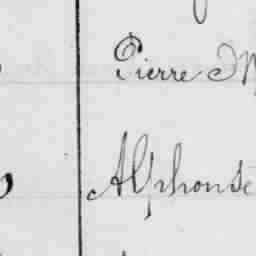 Pierre M
Alphonse